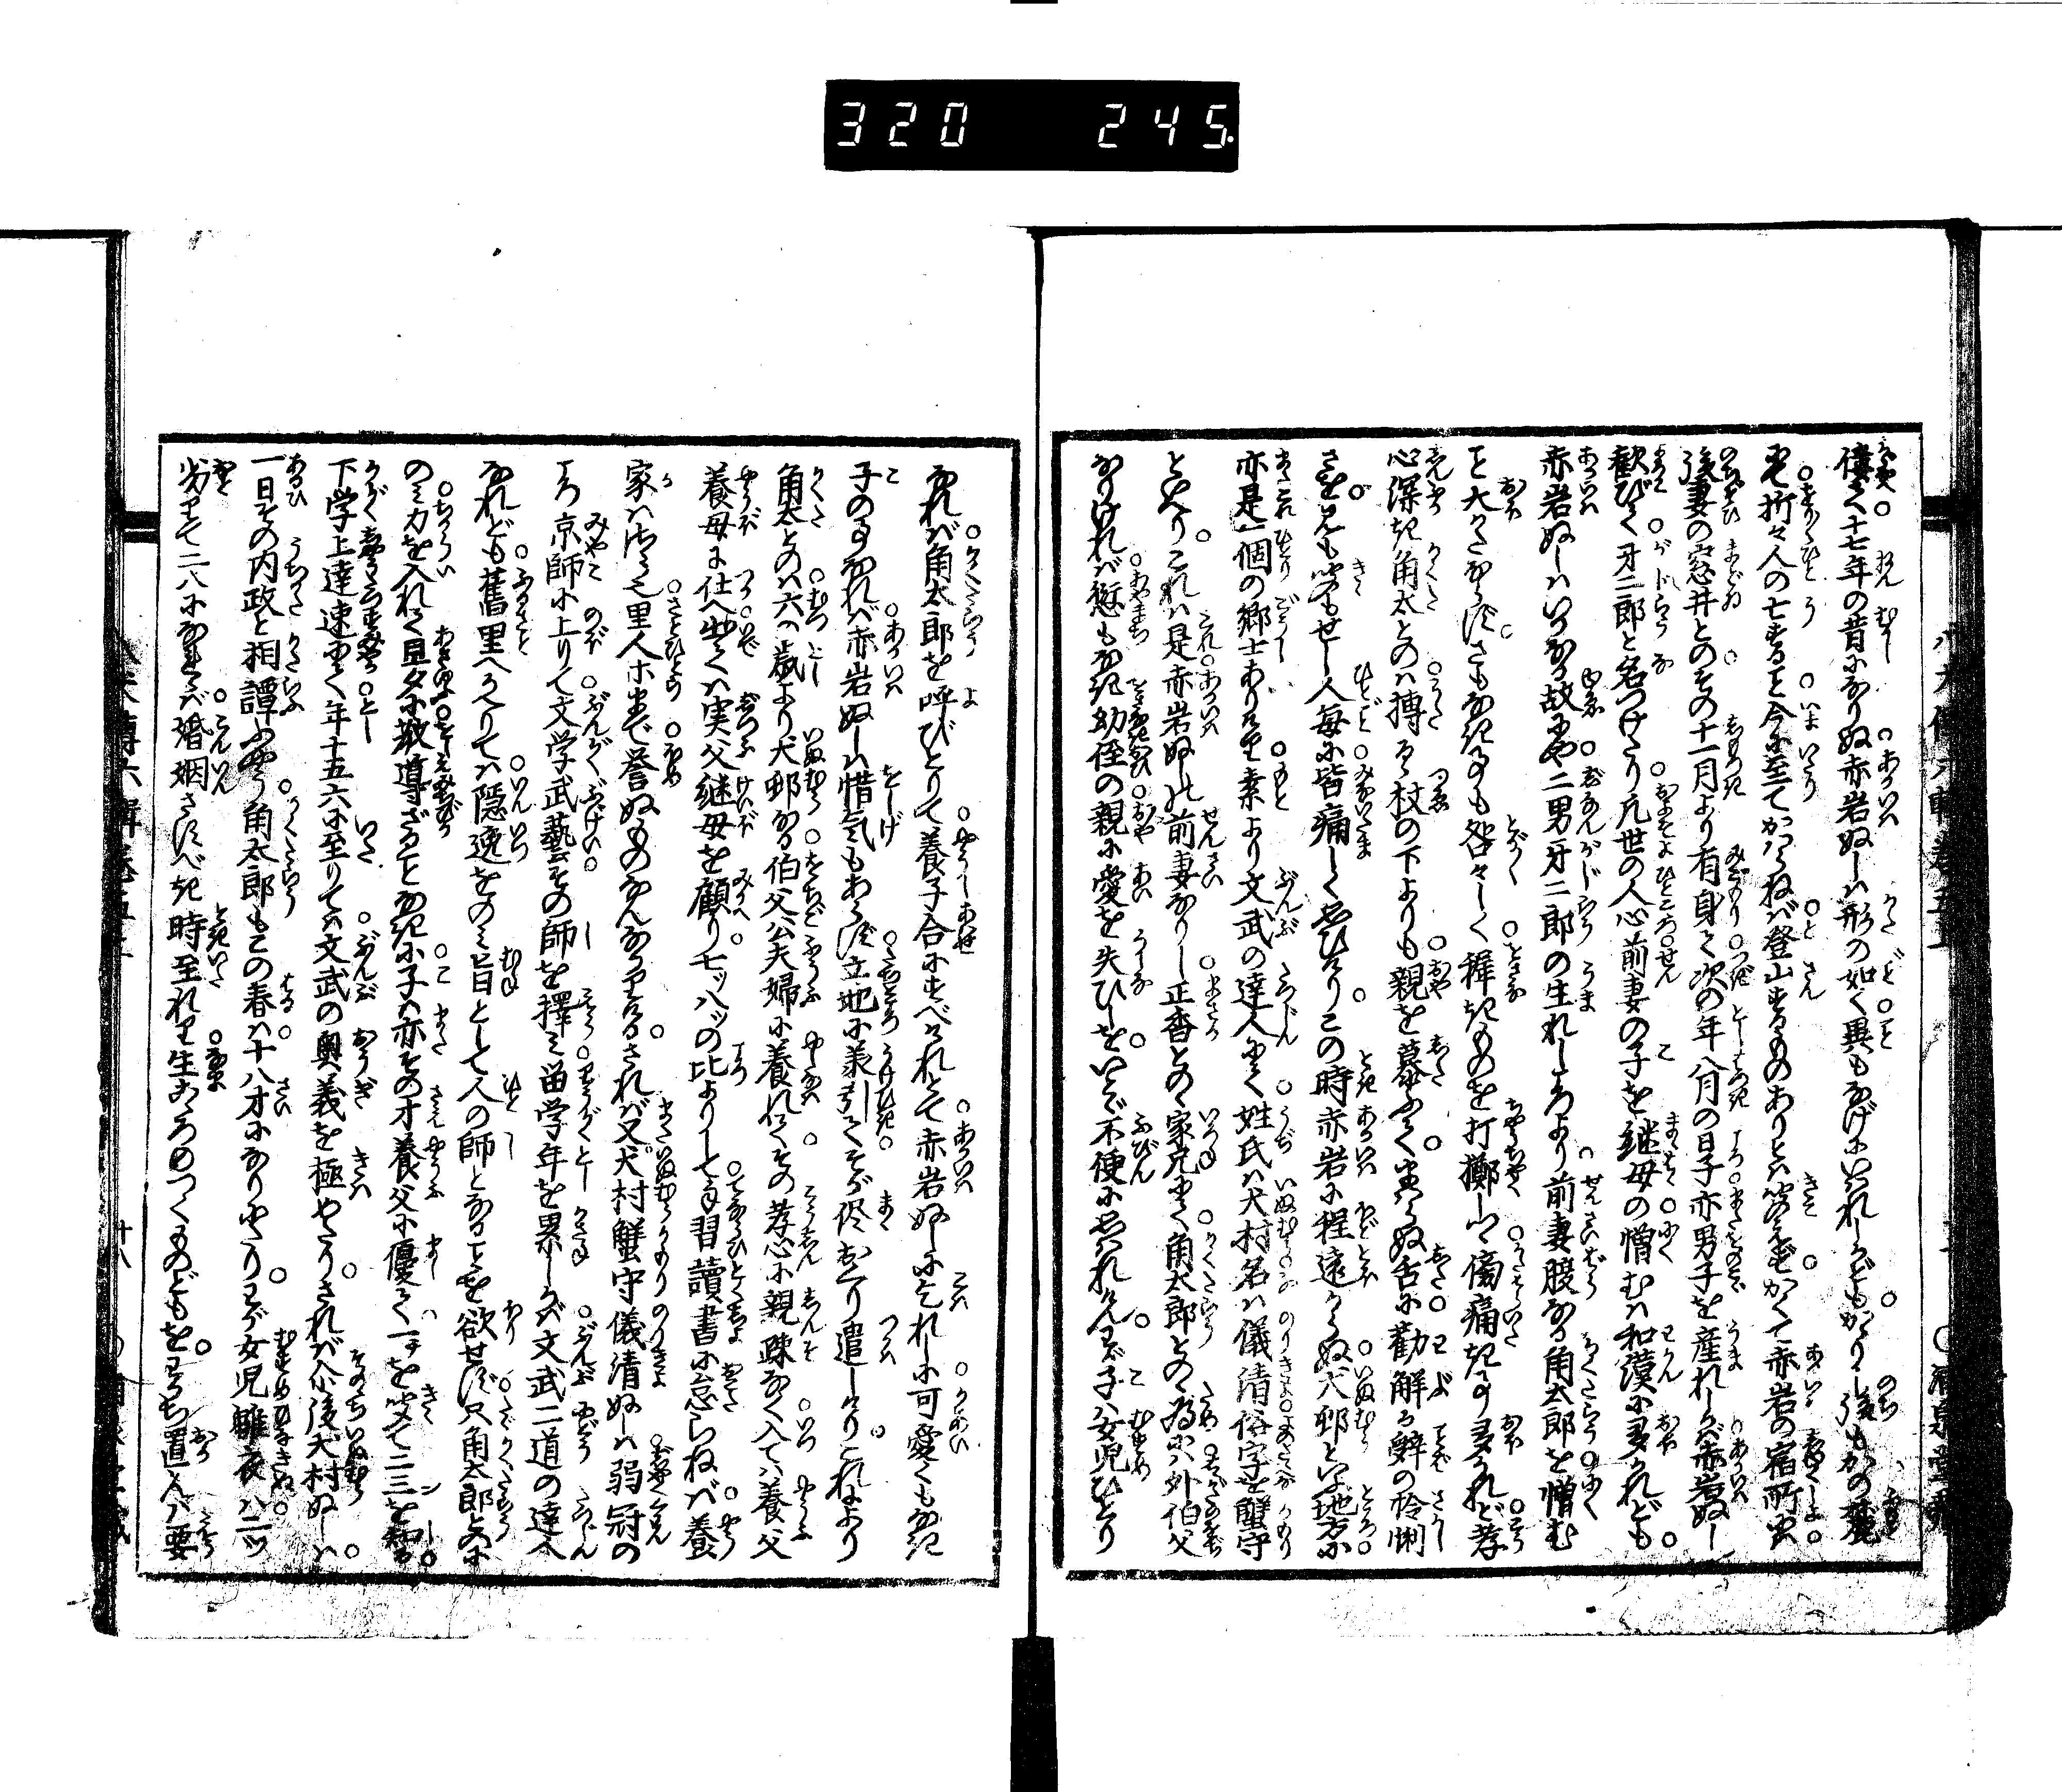 320 245
僂く十七年の昔になりぬ赤岩ぬしは形の如く異もなげにいはれしかどもかゝりし後もかの麓
にて折々人の亡することいまに至てかはらねば登山するものありとは聞えずかくて赤岩の宿所には
後妻の窓井とのその十一月より有身て次の年八月の日子亦男子を産れしかば赤岩ぬし
歓びて牙二郎と名つけたり凡世の人心前妻の子を継母の憎むは和漢に多かれども
赤岩ぬしはいかなる故にや二男牙二郎の生れしころより前妻腹なる角太郎を憎む
こと大かたならずさもなき事も咎々しく稚きものを打擲しつ傷痛き事多かれど孝
心深き角太とのは搏るゝ杖の下よりも親を慕ふてまはらぬ舌に勸解る辞の怜悧
さを見も聞もせし人毎に皆痛しく思ひけりこの時赤岩に程遠からぬ犬邨といふ地方に
亦是一個の郷士ありけり素より文武の達人にて姓氏は犬村名は儀清俗字を蟹守
とぞいへりこれは是赤岩ぬしの前妻なりし正香との家兄にて角太郎との為には外伯父
なりければ愆もなき幼侄の親に愛を失ひしをいと不便に思はれけんわが子は女児ひとり
なれば角太郎を呼びとりて養子合にすべけれとて赤岩ぬしに乞れしに可愛くもなき
子の事なれば赤岩ぬしは惜気もあらず立地に承引てそが侭おくり遣しけりこれより
角太とのは六の歳より犬邨なる伯父公夫婦に養れてその孝心に親疎なく入ては養父
養母に仕へ出ては実父継母を顧り七ッ八ッの比よりして手習讀書に怠らねば養
家はさら也里人ホまで誉ぬものなんなかりけるされば又犬村蟹守儀清ぬしは弱冠の
ころ京師に上りて文学武藝その師を擇み留学年を累しかば文武二道の達人
なれども舊里へかへりては隠逸をのみ旨として人の師となることを欲せず只角太郎とのに
のミ力を入れて旦夕に教導ざることなきに子は亦その才養父に優て一を聞て二三を知る
下学上達速にて年十五六に至りては文武の奥義を極めたりされば八个後犬村ぬしは
一日その内政と相譚ふやう角太郎もこの春は十八才になりにたりわが女児雛衣は二ッ
劣りて二八になりぬれば婚姻さすべき時至れり生こゝろのつくものどもをうち置んは要
八犬傳六輯巻五